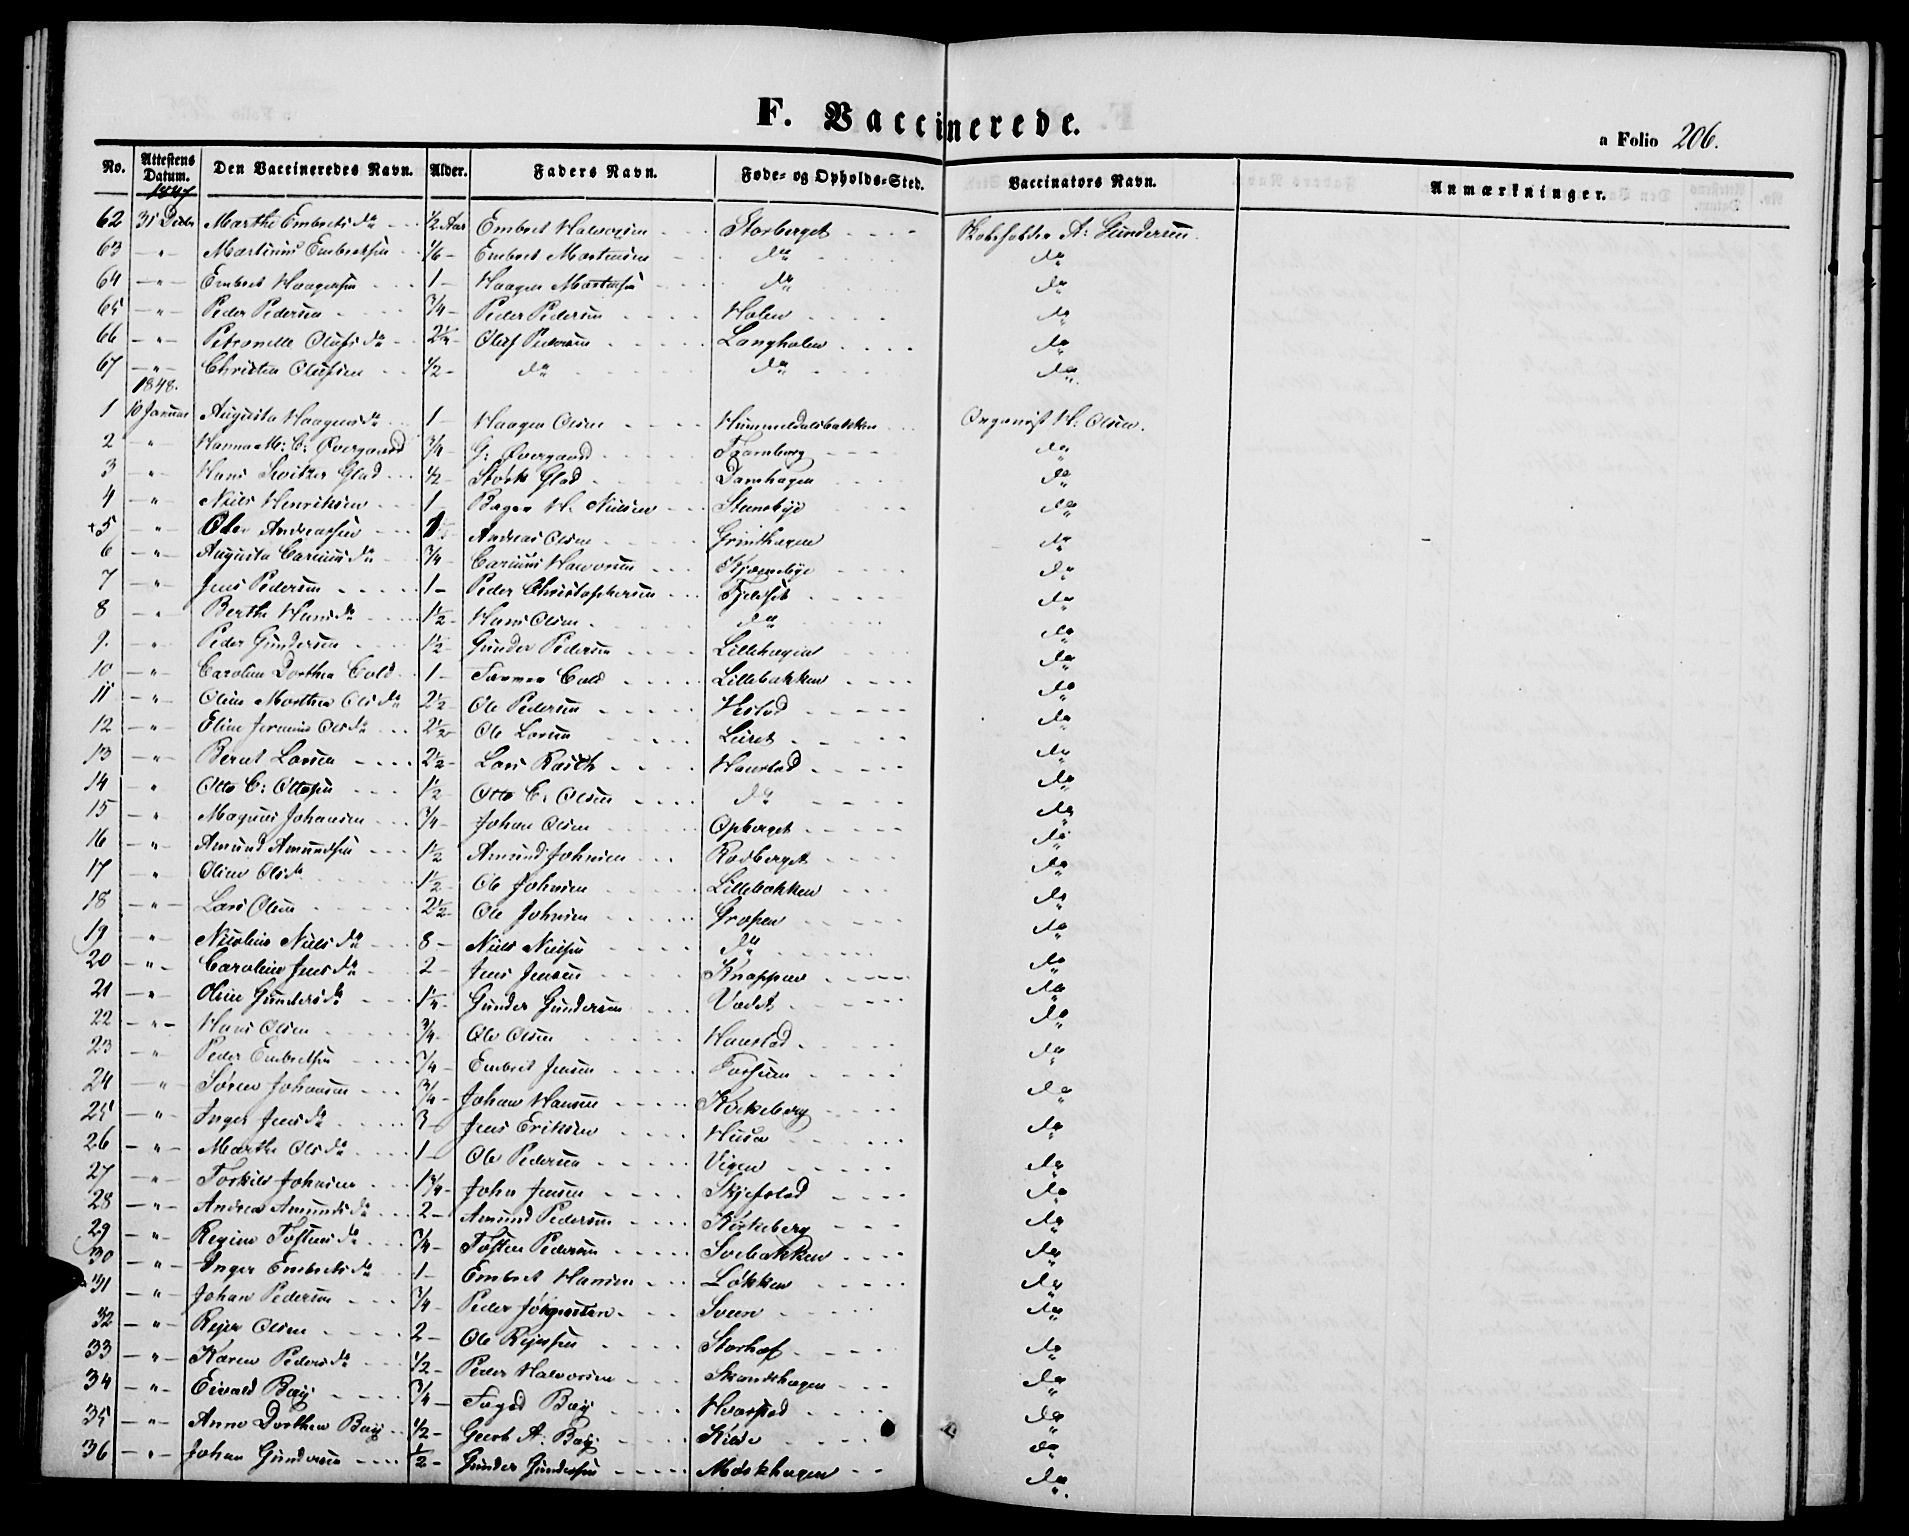 F. Vaccinerede.
a Folio 206.
No. Attestens Datum. Den Vaccineredes Navn. Alder. Faders Navn. Føde- og Opholds-Sted. Vaccinators Navn. Anmærkninger.
1847
62 31 Decbr Marthe Embrets dr ½ Aar Embret Halvorsen Storberget A: Gundersen
63 -"- Martinus Embretsen 1/6 - Embret Martinsen do do
64 -"- Embret Haagensen 1 - Haagen Martinsen do do
65 -"- Peder Pedersen ¾ - Peder Pedersen Holen do
66 -"- Petronelle Olufs dr 2¼ - Oluf Pedersen Langholen do
67 -"- Christen Olufsen ½ - do do do
1848.
1 10 Januar Augusta Haagens dr 1 - Haagen Olsen Hummeldalsbakken Organist H: Olsen.
2 -"- Hanna M: C: Øvergaard ¾ - G: Øvergaard Framberg do
3 -"- Hans Glad ½ - Størk Glad Damhagen do
4 -"- Niels Henriksen 1 - H. Nielsen Stensbye do
+5 -"- Andreassen Andreas Olsen Grinthagen do
6 -"- Augusta Carinus dr ¾ - Carinus Halvorsen Kjernsbye do
7 -"- Jens Pedersen 1 - Peder Christophersen Fjeldset do
8 -"- Berthe Hans dr 1½ - Hans Olsen do do
9. -"- Peder Gundersen 1½ - Gunder Pedersen Lillehagen do
10 -"- Caroline Dorthea Cold 1 - Cold Lillebakken do
11 -"- Oline Marthea Ols dr 2½ - Ole Pedersen do
12 -"- Eline Ols dr 2½ - Ole Larsen do
13 -"- Bernt Larsen 2½ - Lars Haustad do
14 -" Otto C: Ottosen 1½ - Otto C: Olsen do do
15 -"- Magnus Johansen ¾ - Johan Olsen Opberget do
16 -"- Amund Amundsen 1½ Amund Johnsen Rodberget do
17 -"- Oline Ols dr 1½ - Ole Johnsen Lillebakken do
18 -"- Lars Olsen 2½ - Ole Johnsen Gropen do
19 -"- Nicoline Niels dr 8 - Niels Nielsen do do
20 -"- Caroline Jens dr 2 - Jens Jensen Knappen do
21 -"- Oline Gunders dr 1¼ - Gunder Gundersen do
22 -"- Hans Olsen ¾ - Ole Olsen Haustad do
23 -"- Peder Embretsen ¾ - Embret Jensen Fossum do
24 -"- Søren Johansen ¾ - Johan Hansen Kirkeberg do
25 -"- Inger Jens dr 3 - Jens Eriksen Husa do
26 -"- Marthe Ols dr 1 - Ole Pedersen Vigen do
27 -"- Torkild Johnsen 1¾ - John Jensen Skjefstad do
28 -"- Andrea Amunds dr 2 - Amund Pedersen Kirkeberg do
29 -"- Regine Tostens dr ¾ - Tosten Pedersen Svebakken do
30 -"- Inger Embrets dr 1 - Embret Hansen Løkken do
31 -"- Johan Pedersen ¾ - Peder Sveen do
32 -"- Rejer Olsen 2 - Ole Rejersen Storhof do
33 -"- Karen Peders dr ½ - Peder Halvorsen Skandshagen do
34 -"- Eivald Bay ¾ - Bay Hvarstad do
35 -"- Anne Dorthea Bay ½ - Geert A: Bay Kilde do
36 -"- Johan Gundersen ½ - Gunder Gundersen Moskhagen do.